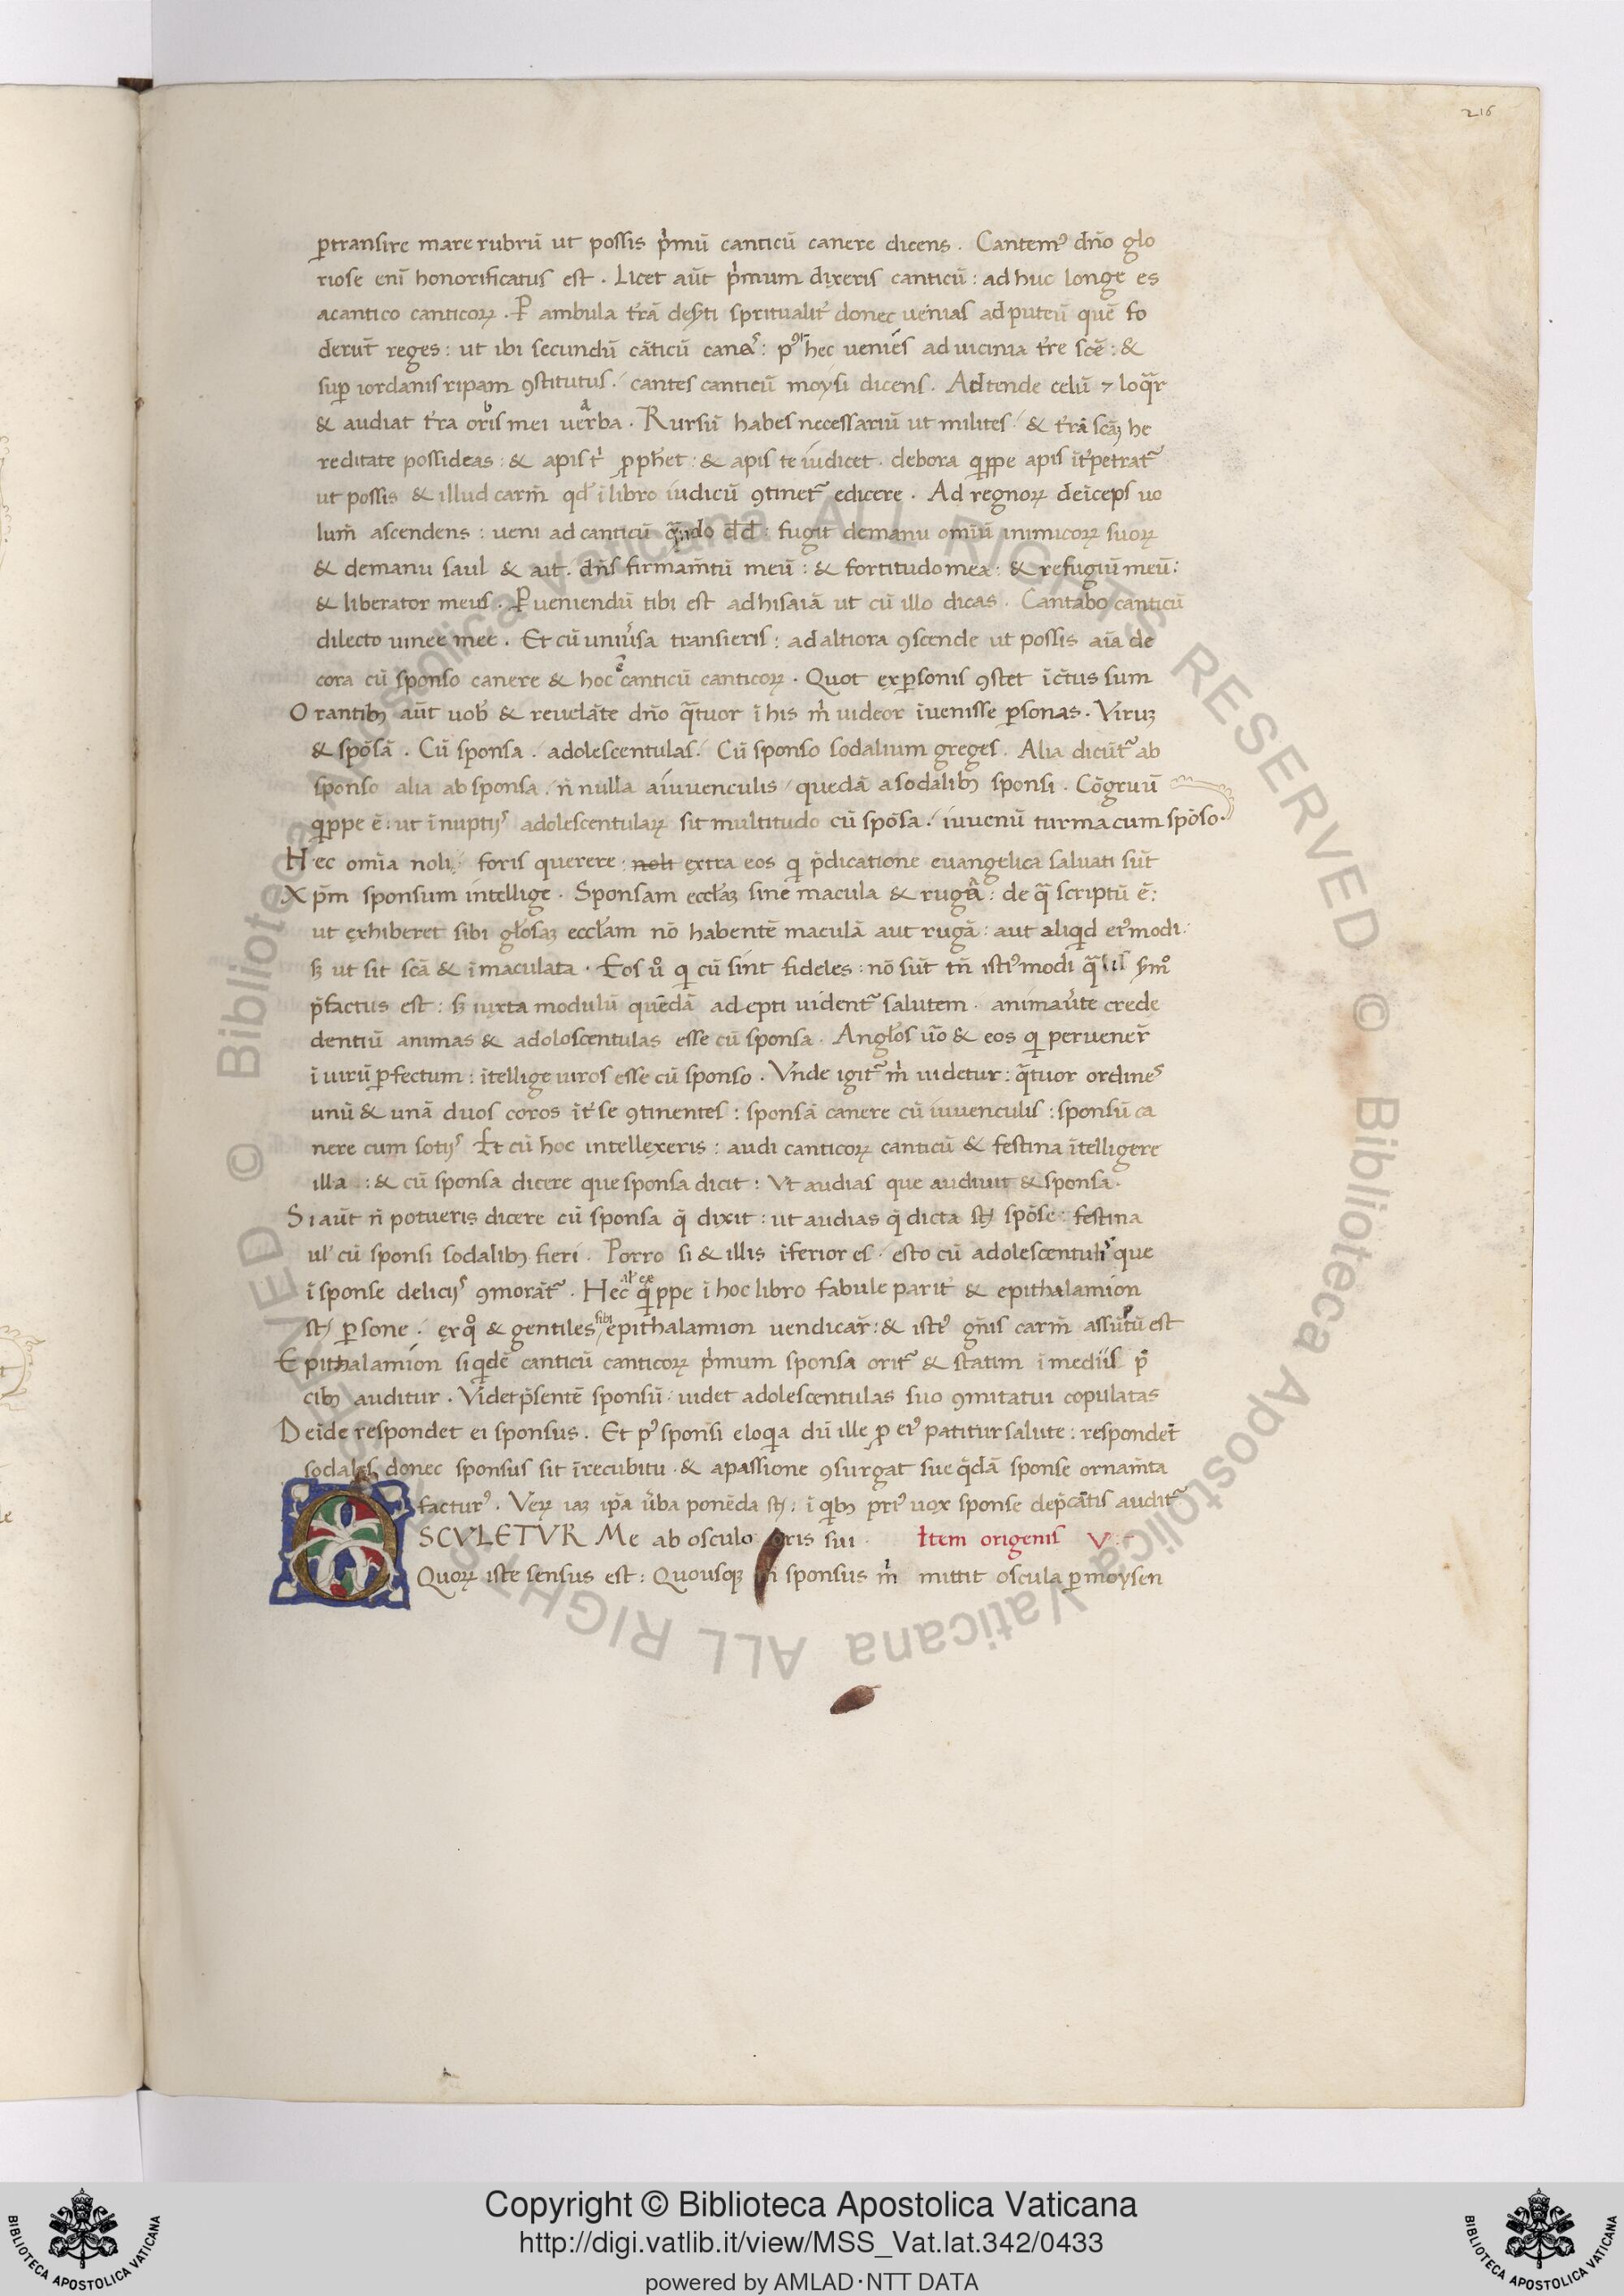 216
ꝑtransire mare rubrũ ut possis pͥmũ canticũ canere dicens . Cantemꝰ dño glo
riose enĩ honorificatus est . Licet aũt pͥmum dixeris canticũ : ad huc longe es
acantico canticoꝝ . Ꝑ ambula tr̃ã deẜti spritualit̃ donec uenias ad puteũ quẽ fo
derũt reges : ut ibi secundũ cãticũ canas : pꝰ hec uenies ad uicinia tr̃re scẽ : &
suꝑ iordanis ripam ꝯstitutus . cantes canticũ moysi dicens . Adtende celũ ⁊ loq̃r
& audiat tr̃ra oris mei uerba . Rursũ habes necessariũ ut milites & tr̃rã scãꝫ he
reditate possideas : & apis tͥ ꝓpħet : & apis te iudicet . debora qͥppe apis ĩt̃petratᷣ
ut possis & illud carm̃ qđ ĩ libro iudicũ ꝯtinetᷣ edicere . Ad regnoꝝ deĩceps uo
lum̃ ascendens : ueni ad canticũ q̃ndo đđ : fugit demanu omĩũ inimicoꝝ suoꝝ
& demanu saul & ait . dñs firmam̃tũ meũ : & fortitudo mea : & refugiũ meũ :
& liberator meus . Ꝑueniendũ tibi est adhisaiã ut cũ illo dicas . Cantabo canticũ
dilecto uinee mee . Et cũ uniũsa transieris : ad altiora ꝯscende ut possis aĩa de
cora cũ sponso canere & hoc canticũ canticoꝝ . Quot exꝑsonis ꝯstet ĩc̃tus sum
Orantibꝫ aũt uob̃ & reuelãte dño q̃tuor ĩ his mͥ uideor ĩuenisse ꝑsonas . Viruꝫ
& spõsã . Cũ sponsa . adolescentulas . Cũ sponso sodalium greges . Alia dicũtᷣ ab
sponso alia ab sponsa . ñ nulla aiuuenculis / quedã a sodalibꝫ sponsi . Cõgruũ
qͥppe ẽ : ut ĩ nuptijs adolescentulaꝝ sit multitudo cũ spõsa . iuuenũ turma cum spõso .
Hec omĩa noli foris querere : noli extra eos qͥ p̃dicatione euangelica saluati sũt
Xp̃m sponsum intellige . Sponsam eccl̃aꝫ sine macula & ruga : de q̃ scriptũ ẽ :
ut exhiberet sibi gl̃osaꝫ eccl̃am nõ habentẽ maculã aut rugã : aut aliqͥd eiꝰmodi .
sꝫ ut sit scã & ĩmaculata . Eos ů qͥ cũ sint fideles : nõ sũt tñ istiꝰmodi q̃lis ẜmo
p̃factus est : sꝫ iuxta modulũ quẽdã ad epti uidentᷣ salutem . animaũte crede
dentiũ animas & adoloscentulas esse cũ sponsa . Angl̃os ũo & eos qͥ peruener̃
ĩ uirũ ꝑfectum : ĩtellige uiros esse cũ sponso . Vnde igitᷣ mͥ uidetur : q̃tuor ordines
unũ & unã duos coros ĩt̃ se ꝯtinentes : sponsã canere cũ iuuenculis : sponsũ ca
nere cum sotijs Et cũ hoc intellexeris : audi canticoꝝ canticũ & festina ĩtelligere
illa . : & cũ sponsa dicere que sponsa dicit : Vt audias que audiuit & sponsa .
Si aũt ñ potueris dicere cũ sponsa q̃ dixit : ut audias q̃ dicta st̃ spõse : festina
ul̃ cũ sponsi sodalibꝫ fieri . Porro si & illis ĩferior es . esto cũ adolescentulis que
ĩ sponse delicijs ꝯmorãtᷣ . Hec qͥppe ĩ hoc libro fabule parit̃ & epithalamion
st̃ ꝑsone . exqͦ & gentiles sibi epithalamion uendicar̃ : & istiꝰ gñis carm̃ assũtũ est
Epithalamion siqͥdẽ canticũ canticoꝝ pͥmum sponsa oritᷣ & statim ĩ mediis p̃
cibꝫ auditur . Videt p̃sentẽ sponsũ . uidet adolescentulas suo ꝯmitatui copulatas
Deĩde respondet ei sponsus . Et pꝰ sponsi eloqͥa dũ ille ꝓ eiꝰ patitur salute : respondet
sodales donec sponsus sit ĩrecubitu . & apassione ꝯsurgat sue q̃dã sponse ornam̃ta
facturꝰ . Veꝝ iaꝫ ip̃a ũba ponẽda st̃ : ĩ qͥbꝫ priꝰ uox sponse dep̃cãtis auditᷣ
OSCVLETVR Me ab osculo oris sui . Item origenis V
Quoꝝ iste sensus est : Quousqꝫ sponsus mͥ mittit oscula ꝑ moysen
Copyright © Biblioteca Apostolica Vaticana
http://digi.vatlib.it/view/MSS_Vat.lat.342/0433
powered by AMLAD·NTT DATA
BIBLIOTECA APOSTOLICA VATICANA
BIBLIOTECA APOSTOLICA VATICANA
© Biblioteca Apostolica Vaticana ALL RIGHTS RESERVED © Biblioteca Apostolica Vaticana ALL RIGHTS RESERVED